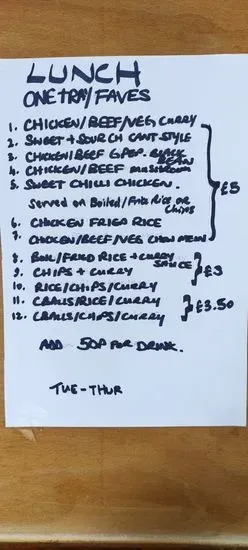 LUNCH
ONE TRAY/FAVES
1. CHICKEN/BEEF/VEG CURRY
2. SWEET + SOUR CH CANT STYLE
3. CHICKEN/BEEF G.PEP. BLACK BEAN
4. CHICKEN/BEEF MUSHROOM
5. SWEET CHILLI CHICKEN.
£5
Served on Boiled/Fried Rice or Chips
6. CHICKEN FRIED RICE
7. CHICKEN/BEEF/VEG CHOW MEIN
8. BOIL/FRIED RICE + CURRY SAUCE
9. CHIPS + CURRY
£3
10. RICE/CHIPS/CURRY
11. CBALLS/RICE/CURRY
£3.50
12. CBALLS/CHIPS/CURRY
ADD 50P FOR DRINK.
TUE-THUR